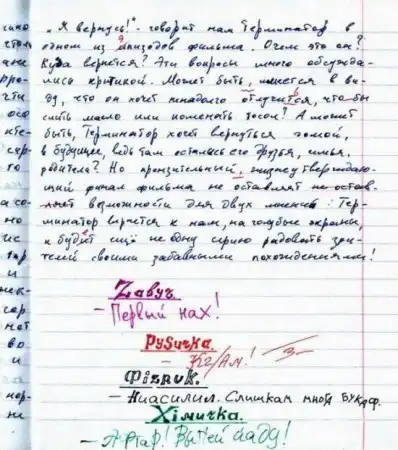 "Я вернусь!" - говорит нам Терминатор в
одном из эпизодов фильма. О чем это он?
Куда вернется? Эти вопросы много обсужда-
лись критикой. Может быть, имеется в ви-
ду, что он хочет ненадолго отлучится, что бы
слить масло или поменять тосол? А может
быть, Терминатор хочет вернуться домой,
в будущее, ведь там остались его друзья, семья,
родители? Но пронзительный, жизнеутверждаю-
щий финал фильма не оставляет
возможности для двух мнений: Тер-
минатор вернется к нам, на голубые экраны,
и будет ещё не одну серию радовать зри-
телей своими забавными похождениями!
Zавуч.
- Первый нах!
РуSичка.
- КГ/Ам! 3-
Фizрuк.
- Ниасилил. Слишкам многа букаф.
Хiмичка.
- Афтар! Выпей йаду!